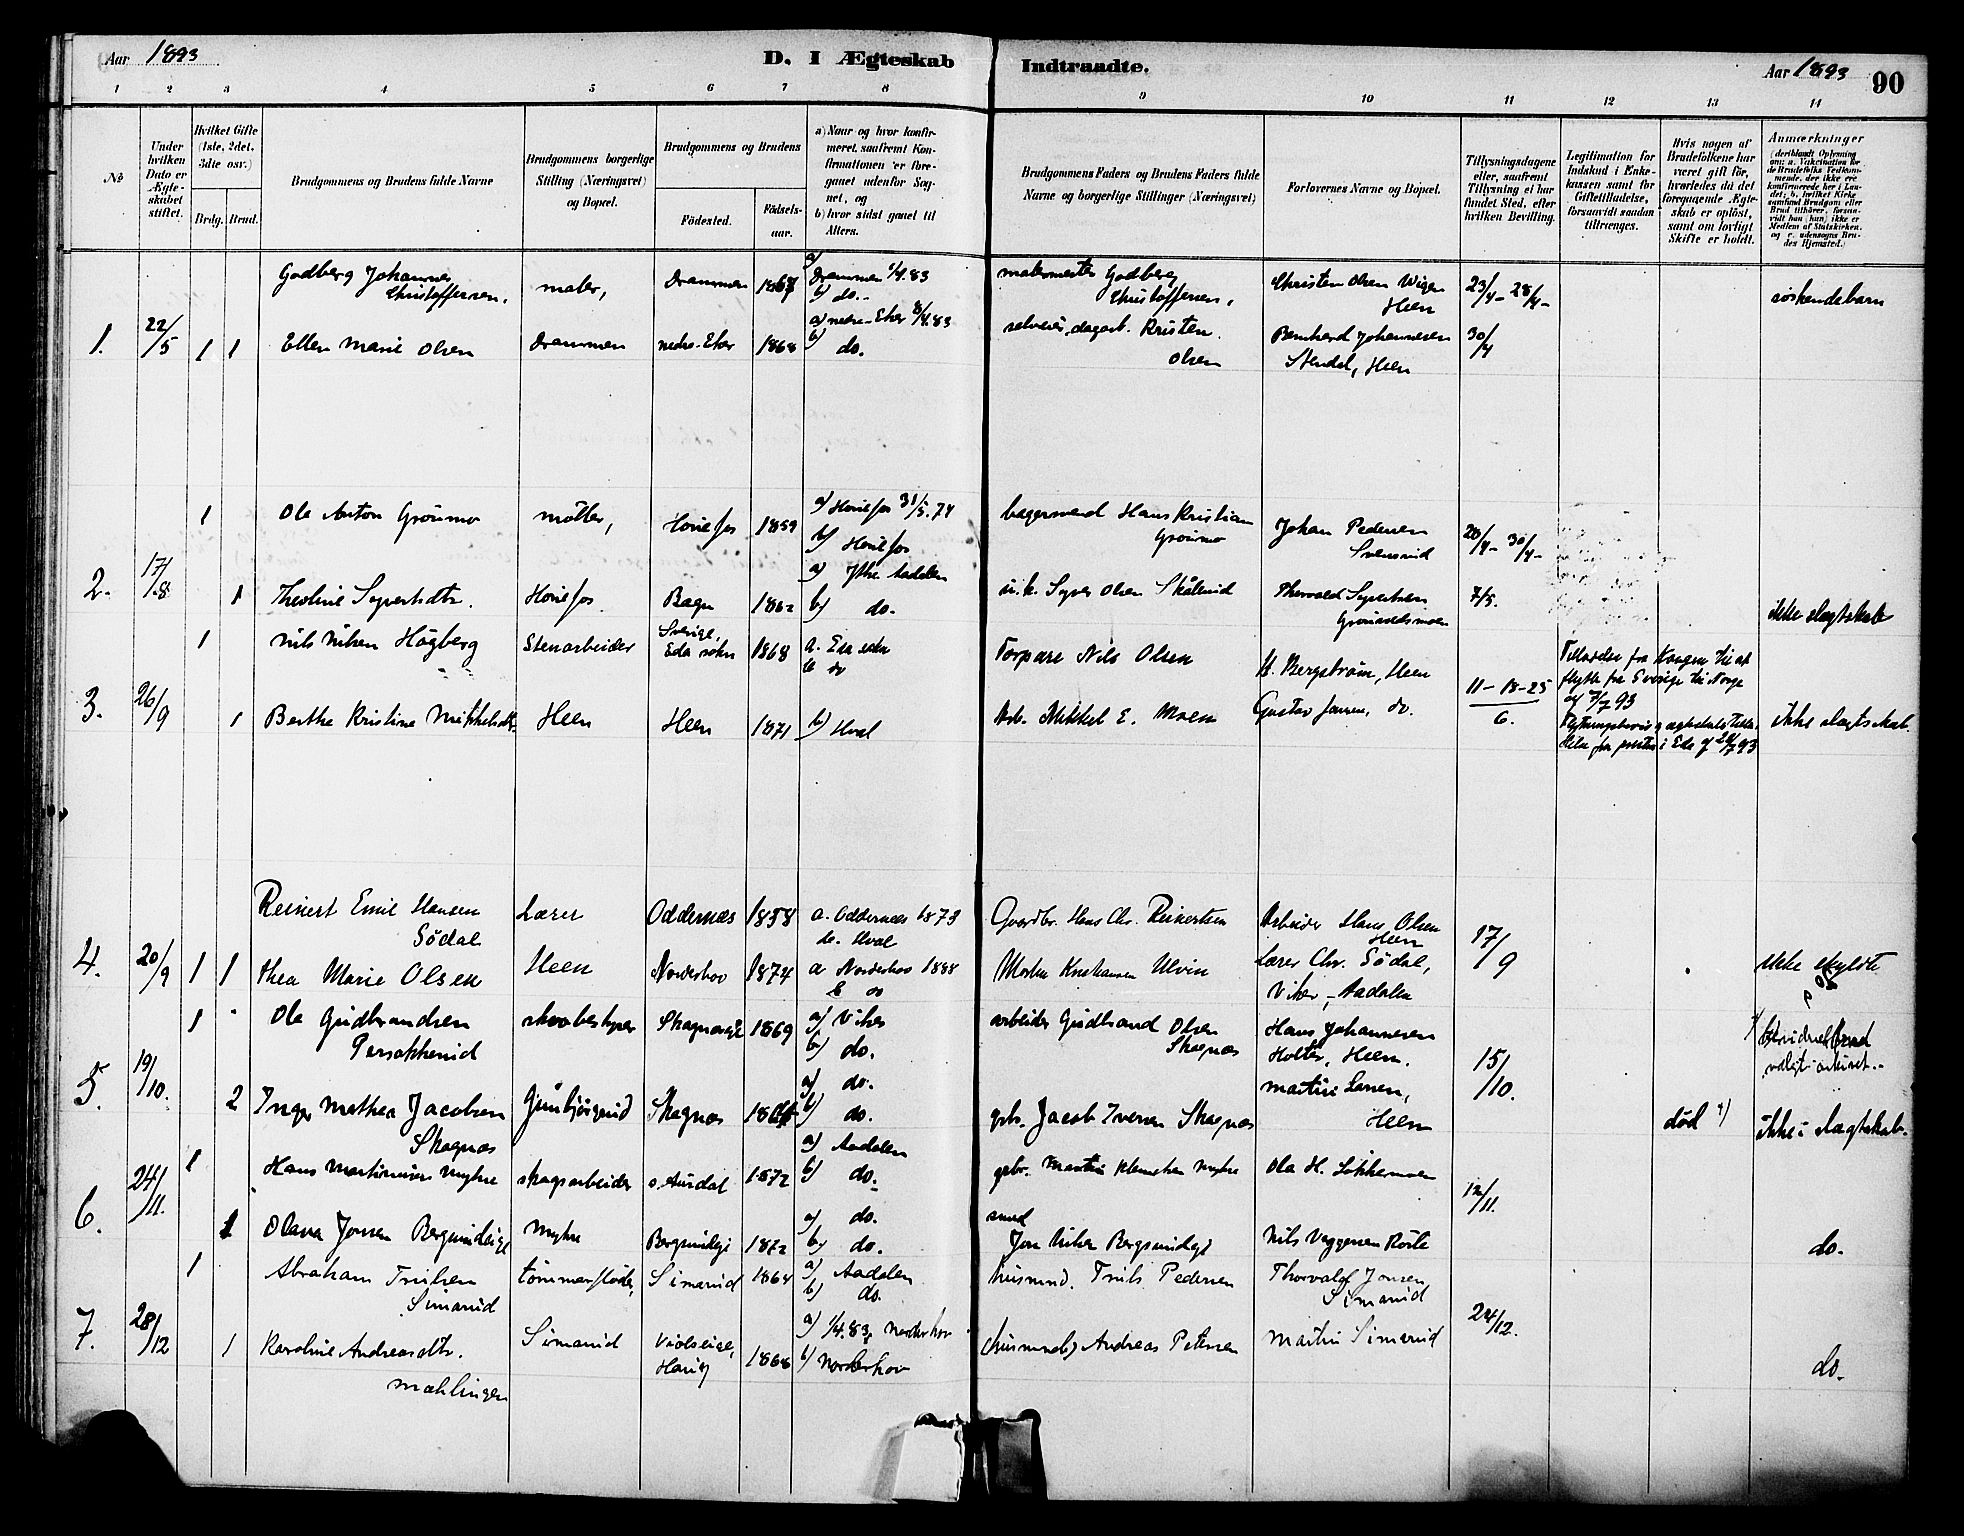 Aar 1893
D. I Ægteskab Indtraadte.
Aar 1893
90
1 2 3 4 5 6 7 8 9 10 11 12 13 14
No
Under hvilken Dato er Ægteskabet stiftet.
Hvilket Gifte (1ste, 2det, 3dte osv.)
Brdg. Brud.
Brudgommens og Brudens fulde Navne
Brudgommens borgerlige Stilling (Næringsvei) og Bopæl.
Brudgommens og Brudens
Födested.
Födsels-aar.
a) Naar og hvor konfirmeret, saafremt Konfirmationen er foregaaet udenfor Sognet, og
b) hvor sidst gaaet til Alters.
Brudgommens Faders og Brudens Faders fulde Navne og borgerlige Stillinger (Næringsvei)
Forlovernes Navne og Bopæl.
Tillysningsdagene eller, saafremt Tillysning ei har fundet Sted, efter hvilken Bevilling.
Legitimation for Indskud i Enkekassen samt for Giftetilladelse, forsaavidt saadan tiltrænges.
Hvis nogen af Brudefolkene har været gift før, hvorledes da det foregaaende Ægteskab er opløst, samt om lovligt Skifte er holdt.
Anmærkninger
(deriblandt Oplysning om: a. Vakcination for de Brudefolks Vedkommende, der ikke ere konfirmerede her i Landet; b. hvilket Kirkesamfund Brudgom eller Brud tilhører, forsaavidt han (hun) ikke er Medlem af Statskirken, og c. udensogns Brudes Hjemsted.)
1. 22/5 1 1
Godberg Johannes Christoffersen,
maler,
Drammen
a) Drammen 1/4.83
b) do.
malermester Godberg Christoffersen,
Christen Olsen Wigen Heen
23/4 - 28/4 -
søskendebarn
Ellen Marie Olsen
Drammen
nedre-Eker
1868
a) nedre-Eker 8/4.83
b) do.
selveier, dagarb. Kristen Olsen
Bernhard Johannesen Stendal, Heen
30/4
2. 17/8. 1 1
Ole Anton Grönmo
møller,
Hönefos
1859
a) Hönefos 31/5.74
b) Hönefos
bagersvend Hans Kristian Grönmo
Johan Pedersen
28/4 - 30/4 -
Theoline Syversdtr.
Hönefos.
Bagn
1862
a) Ytre Aadalen
b) do.
Syver Olsen
Thorvald Syvertsen
7/5.
ikke slægtskab
3. 26/9 1 1
Nils Nilsen Högberg
Stenarbeider
Sverige, Eda sokn
1868
a. Eda sokn
b do
Torpare Nils Olsen
H. Bergström, Heen
11 - 18 - 25
6.
Tilladelse fra Kongen til at flytte fra Sverige til Norge af 7/7 93
Berthe Kristine Mikkelsdtr.
Heen
Heen
1871
b) Hval
Arb. Mikkel E. Moen
Gustav Jansen, do.
ikke slægtskab.
4. 20/9 1 1
Reinert Emil Hansen Södal
Lærer
Oddernæs
1858
a. Oddernæs 1873
b. Hval
Gaardbr. Hans Chr. Reinertsen
Arbeider Hans Olsen Heen
17/9
Thea Marie Olsen
Heen
Norderhov
1874
a Norderhov 1888
b do
Lærer Chr. Södal, Viker, - Aadalen
ikke skyldte
5. 19/10. 1 2
Ole Gudbrandsen
1869
a) Viker
b) do.
arbeider Gudbrand Olsen Skagnæs
Hans Johannesen Holter, Heen.
15/10.
Inger Mathea Jacobsen Skagnæs
Skagnæs
a) do.
b) do.
gbr. Jacob Iversen Skagnæs
Martin Larsen, Heen
død
ikke i slægtskab.
6. 24/11. 1 1
Hans Martiniusen Myhre
skogsarbeider
s. Aurdal
1872
a) Aadalen
b) do.
gbr.
Ola H.
12/11.
Olava Jonsen
Myhre
1872
a) do.
b) do.
smed
Jon Nilsen
do.
7. 28/12 1 1
Abraham Trulsen Simarud
tömmerfløder,
Simarud
1864
a) Aadalen
b) do.
husmnd. Truls Pedersen
Thorvald Jonsen, Simarud
24/12.
Karoline Andreasdtr. Mæhlingen
Simarud
1868
a) 1/4.83, Norderhov
b) Norderhov
Andreas Petersen
Martin Simarud
do.